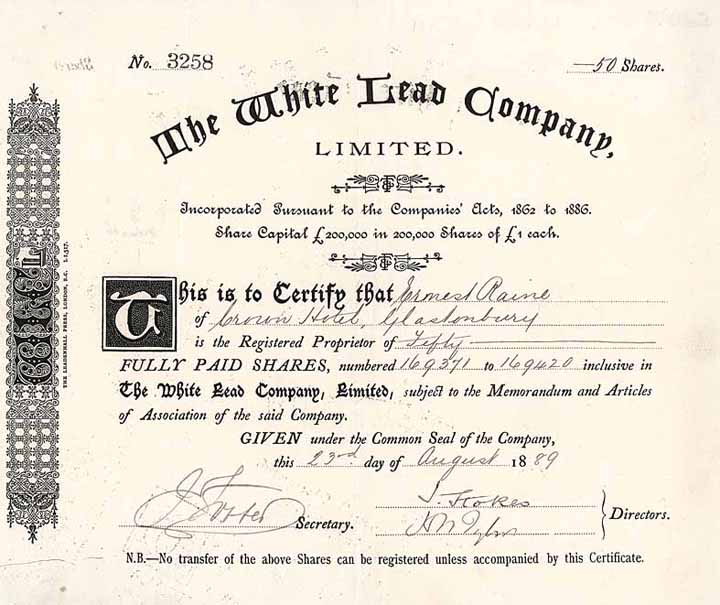 No. 3258
50 Shares.
The White Lead Company,
LIMITED.
Incorporated Pursuant to the Companies' Acts, 1862 to 1886.
Share Capital £200,000 in 200,000 Shares of £1 each.
This is to Certify that Ernest Raine
of Crown Hotel, Glastonbury
is the Registered Proprietor of Fifty
FULLY PAID SHARES, numbered 169371 to 169420 inclusive in
The White Lead Company, Limited, subject to the Memorandum and Articles
of Association of the said Company.
GIVEN under the Common Seal of the Company,
this 23rd day of August 1889
J Foster Secretary.
J Stokes
Directors.
N.B.—No transfer of the above Shares can be registered unless accompanied by this Certificate.
THE LEADENHALL PRESS, LONDON, E.C.